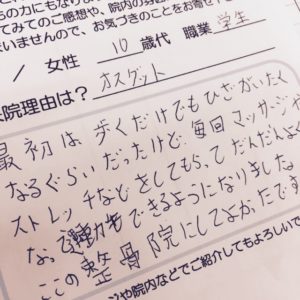 の力にもなりま
てみてのご感想や、院内の雰囲
いませんので、お気づきのことをお寄せ
/ 女性 10 歳代 職業 学生
院理由は? オスグット
最初は歩くだけでもひざがいたく
なるぐらいだったけど、毎回マッサージや
ストレッチなどをしてもらってだんだんよく
なって運動もできるようになりました
ここの整骨院にしてよかったです
ジや院内などでご紹介してもよろしいで